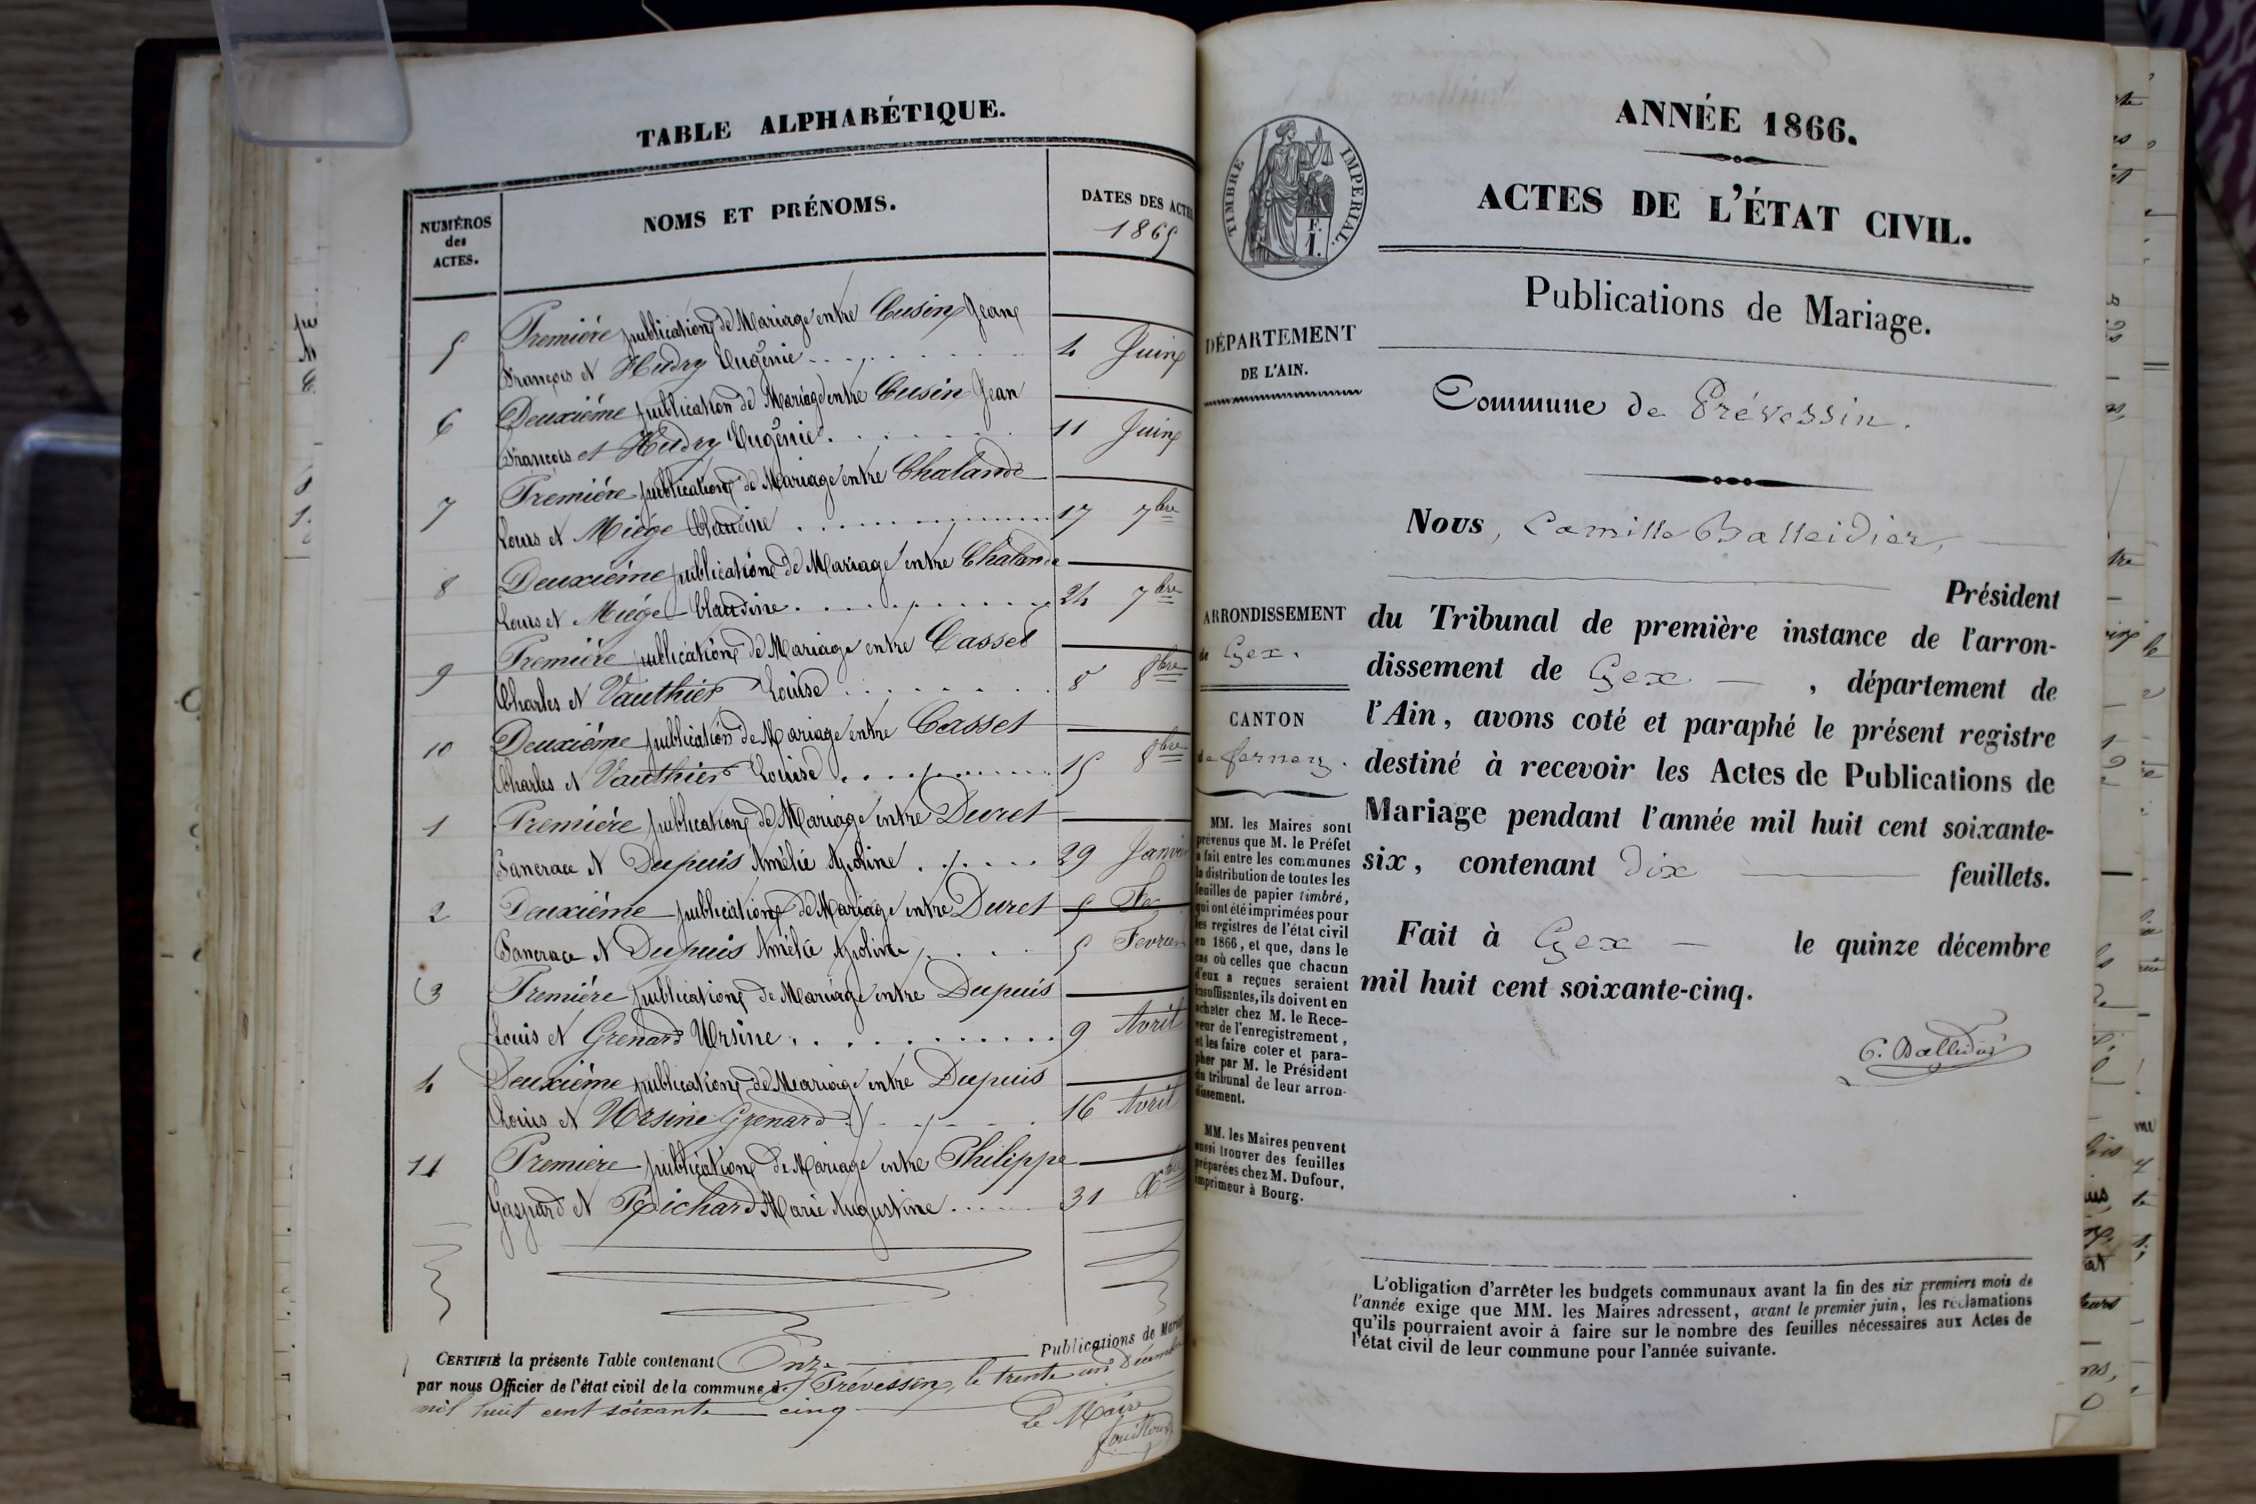 TABLE ALPHABÉTIQUE.
NUMÉROS
des
ACTES.
NOMS ET PRÉNOMS.
DATES DES ACTES
1865
5 Première publication de Mariage entre Cusin Jean
François et Hudry Eugénie 4 Juin
6 Deuxième publication de Mariage entre Cusin Jean
François et Hudry Eugénie 11 Juin
7 Première publication de Mariage entre Chalande
Louis et Miège Claudine 17 7bre
8 Deuxième publication de Mariage entre Chalande
Louis et Miège Claudine 24 7bre
9 Première publication de Mariage entre Casset
Charles et Vauthier Louise 8 8bre
10 Deuxième publication de Mariage entre Casset
Charles et Vauthier Louise 15 8bre
1 Première publication de Mariage entre Duret
Pancrace et Dupuis Amélie Apoline 29 Janvier
2 Deuxième publication de Mariage entre Duret 5
Pancrace et Dupuis Amélie Apoline 5 Fevrier
3 Première publication de Mariage entre Dupuis
Louis et Grenard Ursine 9 Avril
4 Deuxième publication de Mariage entre Dupuis
Louis et Ursine Grenard 16 Avril
11 Première publication de Mariage entre Philippe
Gaspard et Richard Marie Augustine 31 Xbre
CERTIFIÉ la présente Table contenant Onze Publications de Mariage
par nous Officier de l'état civil de la commune de Prévessin, le trente un Décembre
mil huit cent soixante cinq
Le Maire
TIMBRE IMPERIAL.
F.
1.
DÉPARTEMENT
DE L'AIN.
ARRONDISSEMENT
de Gex.
CANTON
de Ferney.
MM. les Maires sont
prévenus que M. le Préfet
a fait entre les communes
la distribution de toutes les
feuilles de papier timbré,
qui ont été imprimées pour
les registres de l'état civil
en 1866, et que, dans le
cas où celles que chacun
d'eux a reçues seraient
insuffisantes, ils doivent en
acheter chez M. le Rece-
veur de l'enregistrement,
et les faire coter et para-
pher par M. le Président
du tribunal de leur arron-
dissement.
MM. les Maires peuvent
aussi trouver des feuilles
préparées chez M. Dufour,
imprimeur à Bourg.
ANNÉE 1866.
ACTES DE L'ÉTAT CIVIL.
Publications de Mariage.
Commune de Prévessin.
Nous, Camille Balleidier,
Président
du Tribunal de première instance de l'arron-
dissement de Gex, département de
l'Ain, avons coté et paraphé le présent registre
destiné à recevoir les Actes de Publications de
Mariage pendant l'année mil huit cent soixante-
six, contenant dix feuillets.
Fait à Gex le quinze décembre
mil huit cent soixante-cinq.
C. Balleidier
L'obligation d'arrêter les budgets communaux avant la fin des six premiers mois de
l'année exige que MM. les Maires adressent, avant le premier juin, les réclamations
qu'ils pourraient avoir à faire sur le nombre des feuilles nécessaires aux Actes de
l'état civil de leur commune pour l'année suivante.